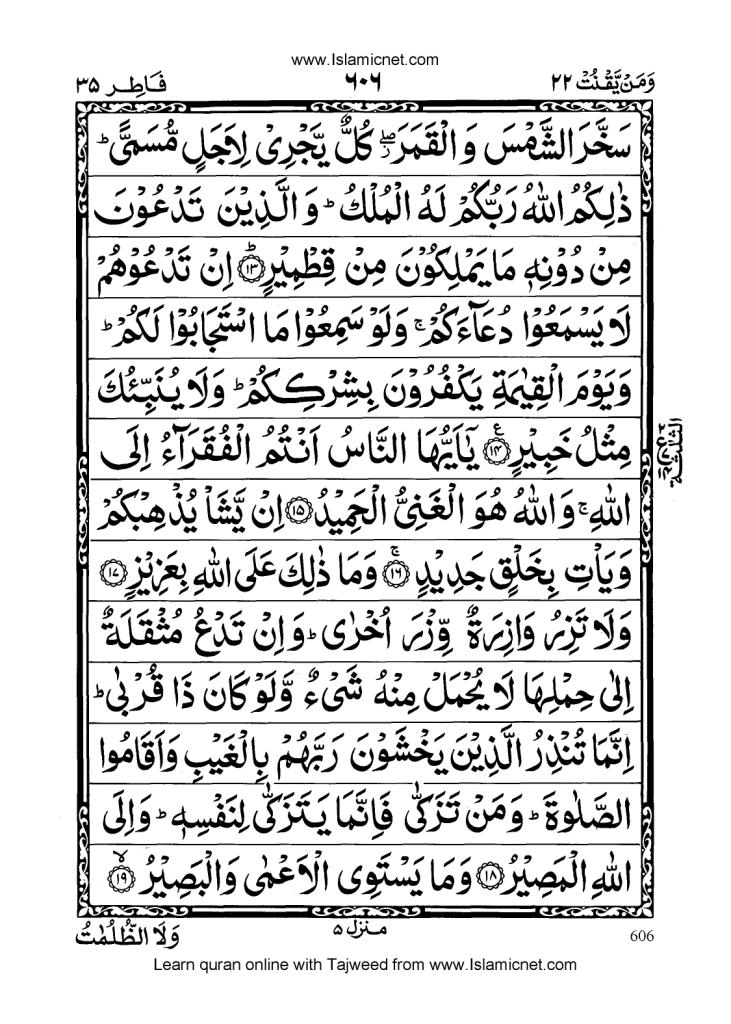 www.Islamicnet.com
وَمَنْ يَّقْنُتْ ۲۲ ٦٠٦ فَاطِر ۳۵
سَخَّرَ الشَّمْسَ وَ الْقَمَرَ ۖ ز كُلٌّ يَّجْرِىْ لِاَجَلٍ مُّسَمًّى ؕ
ذٰلِكُمُ اللّٰهُ رَبُّكُمْ لَهُ الْمُلْكُ ؕ وَ الَّذِيْنَ تَدْعُوْنَ
مِنْ دُوْنِهٖ مَا يَمْلِكُوْنَ مِنْ قِطْمِيْرٍ ؕ ﴿۱۳﴾ اِنْ تَدْعُوْهُمْ
لَا يَسْمَعُوْا دُعَآءَكُمْ ۚ وَلَوْ سَمِعُوْا مَا اسْتَجَابُوْا لَكُمْ ؕ
وَيَوْمَ الْقِيٰمَةِ يَكْفُرُوْنَ بِشِرْكِكُمْ ؕ وَلَا يُنَبِّئُكَ
مِثْلُ خَبِيْرٍ ﴿۱۴﴾ ع يٰۤاَيُّهَا النَّاسُ اَنْتُمُ الْفُقَرَآءُ اِلَى
اللّٰهِ ۚ وَاللّٰهُ هُوَ الْغَنِىُّ الْحَمِيْدُ ﴿۱۵﴾ اِنْ يَّشَاْ يُذْهِبْكُمْ
وَيَاْتِ بِخَلْقٍ جَدِيْدٍ ۚ ﴿۱۶﴾ وَمَا ذٰلِكَ عَلَى اللّٰهِ بِعَزِيْزٍ ﴿۱۷﴾
وَلَا تَزِرُ وَازِرَةٌ وِّزْرَ اُخْرٰى ؕ وَاِنْ تَدْعُ مُثْقَلَةٌ
اِلٰى حِمْلِهَا لَا يُحْمَلْ مِنْهُ شَىْءٌ وَّلَوْ كَانَ ذَا قُرْبٰى ؕ
اِنَّمَا تُنْذِرُ الَّذِيْنَ يَخْشَوْنَ رَبَّهُمْ بِالْغَيْبِ وَاَقَامُوا
الصَّلٰوةَ ؕ وَمَنْ تَزَكّٰى فَاِنَّمَا يَتَزَكّٰى لِنَفْسِهٖ ؕ وَاِلَى
اللّٰهِ الْمَصِيْرُ ﴿۱۸﴾ وَمَا يَسْتَوِى الْاَعْمٰى وَالْبَصِيْرُ ۙ ﴿۱۹﴾
الثلثة
۲ ع ۱۴
منزل ۵
وَلَا الظُّلُمٰتُ
606
Learn quran online with Tajweed from www.Islamicnet.com